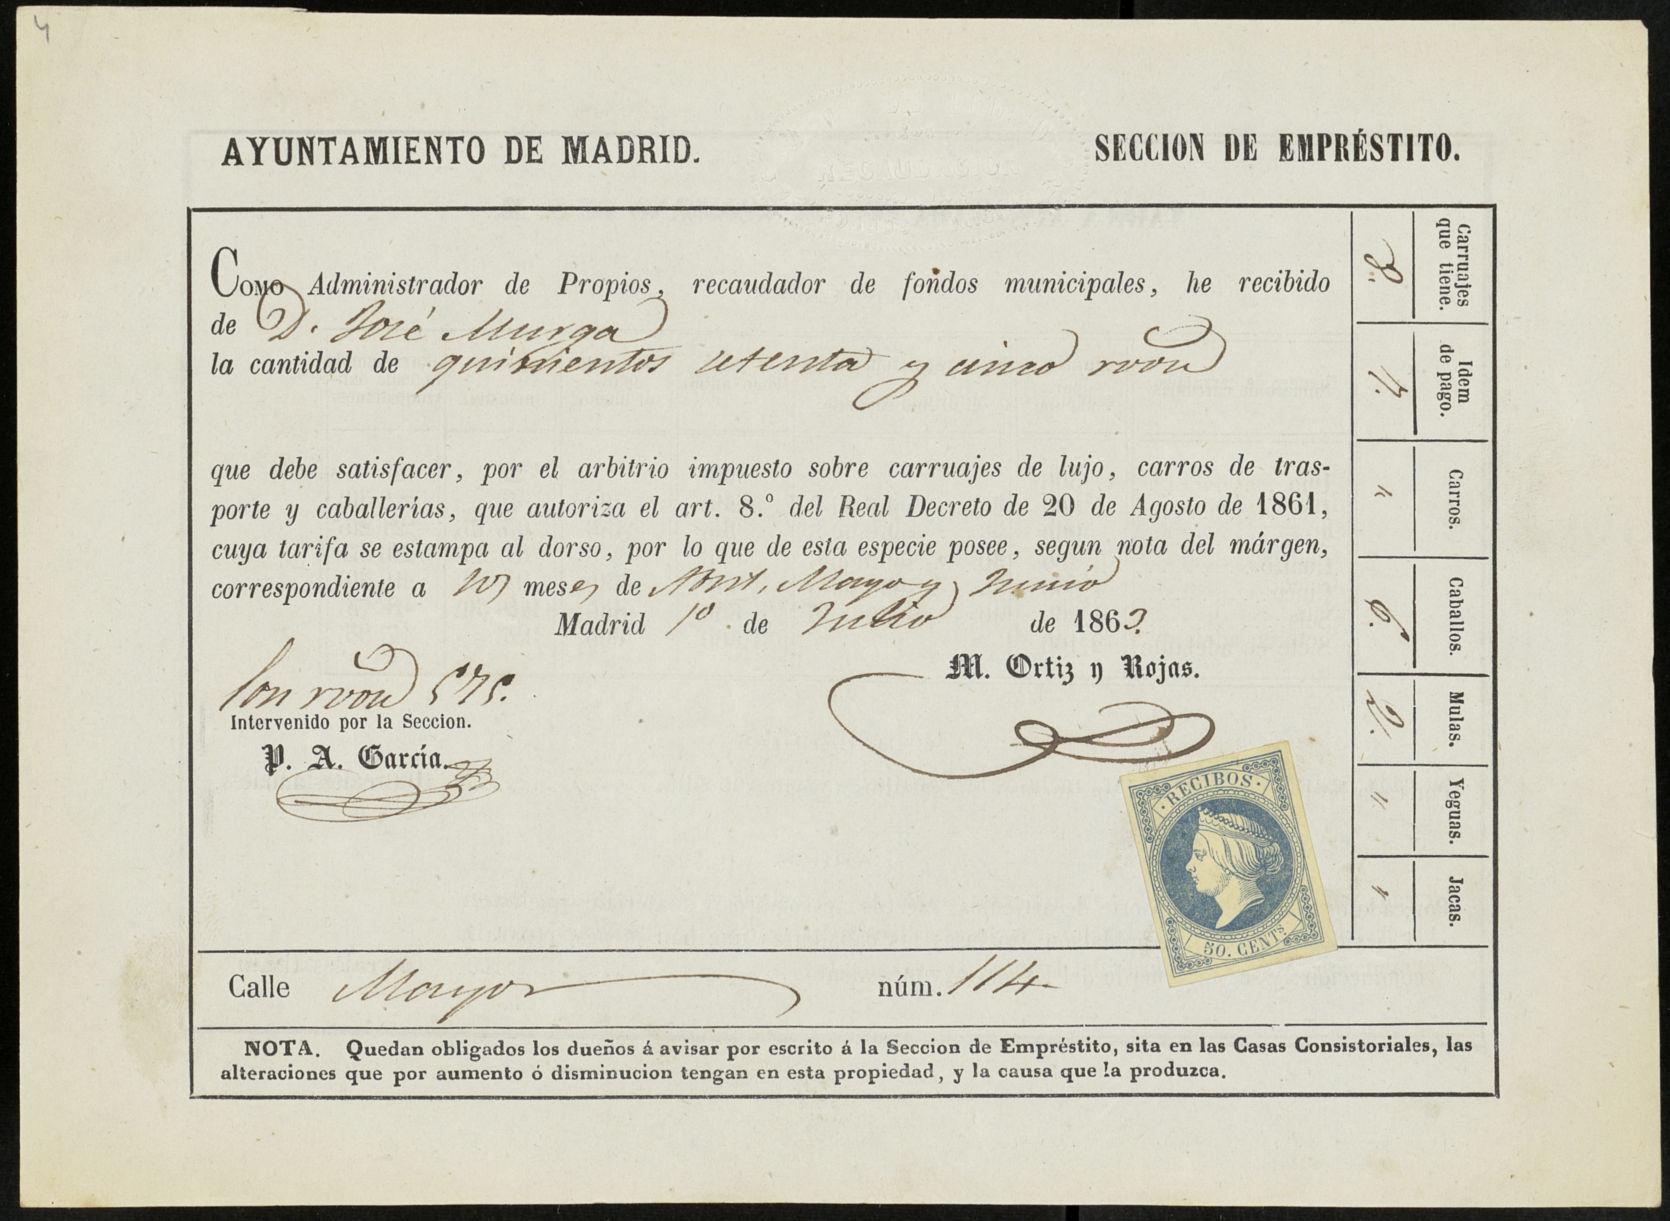 4
AYUNTAMIENTO DE MADRID.
SECCION DE EMPRÉSTITO.
COMO Administrador de Propios, recaudador de fondos municipales, he recibido
de D. José Murga
la cantidad de quinientos setenta y cinco rvon
que debe satisfacer, por el arbitrio impuesto sobre carruajes de lujo, carros de tras-
porte y caballerías, que autoriza el art. 8.º del Real Decreto de 20 de Agosto de 1861,
cuya tarifa se estampa al dorso, por lo que de esta especie posee, segun nota del márgen,
correspondiente a los meses de Abril, Mayo y Junio
Madrid 1º de Julio de 1863.
M. Ortiz y Rojas.
Son rvon 575.
Intervenido por la Seccion.
P. A. García.
Carruajes que tiene. 8.
Idem de pago. 7.
Carros. "
Caballos. 6.
Mulas. 2.
Yeguas. "
Jacas. "
· RECIBOS ·
50. CENTS.
Calle Mayor núm. 114
NOTA. Quedan obligados los dueños á avisar por escrito á la Seccion de Empréstito, sita en las Casas Consistoriales, las
alteraciones que por aumento ó disminucion tengan en esta propiedad, y la causa que la produzca.